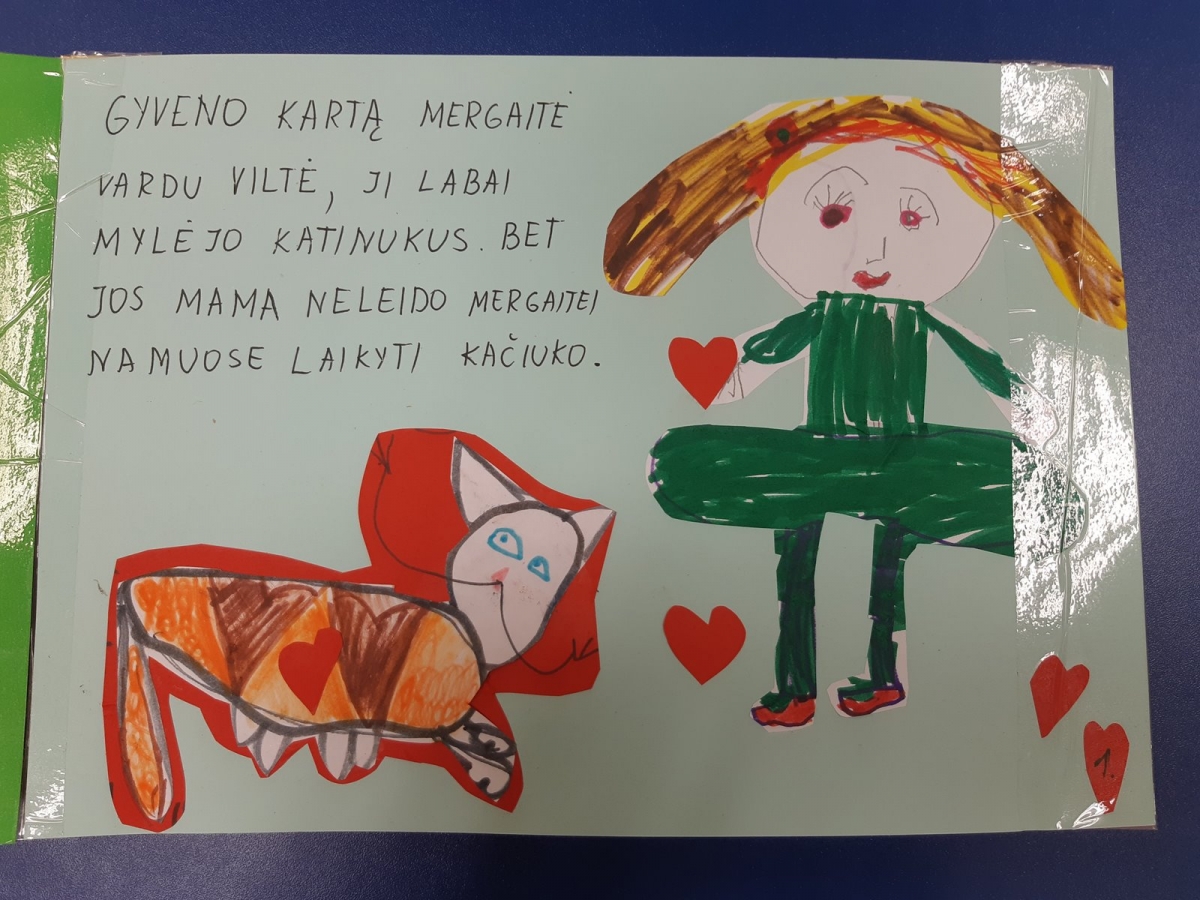 GYVENO KARTĄ MERGAITĖ
VARDU VILTĖ, JI LABAI
MYLĖJO KATINUKUS. BET
JOS MAMA NELEIDO MERGAITEI
NAMUOSE LAIKYTI KAČIUKO.
1.